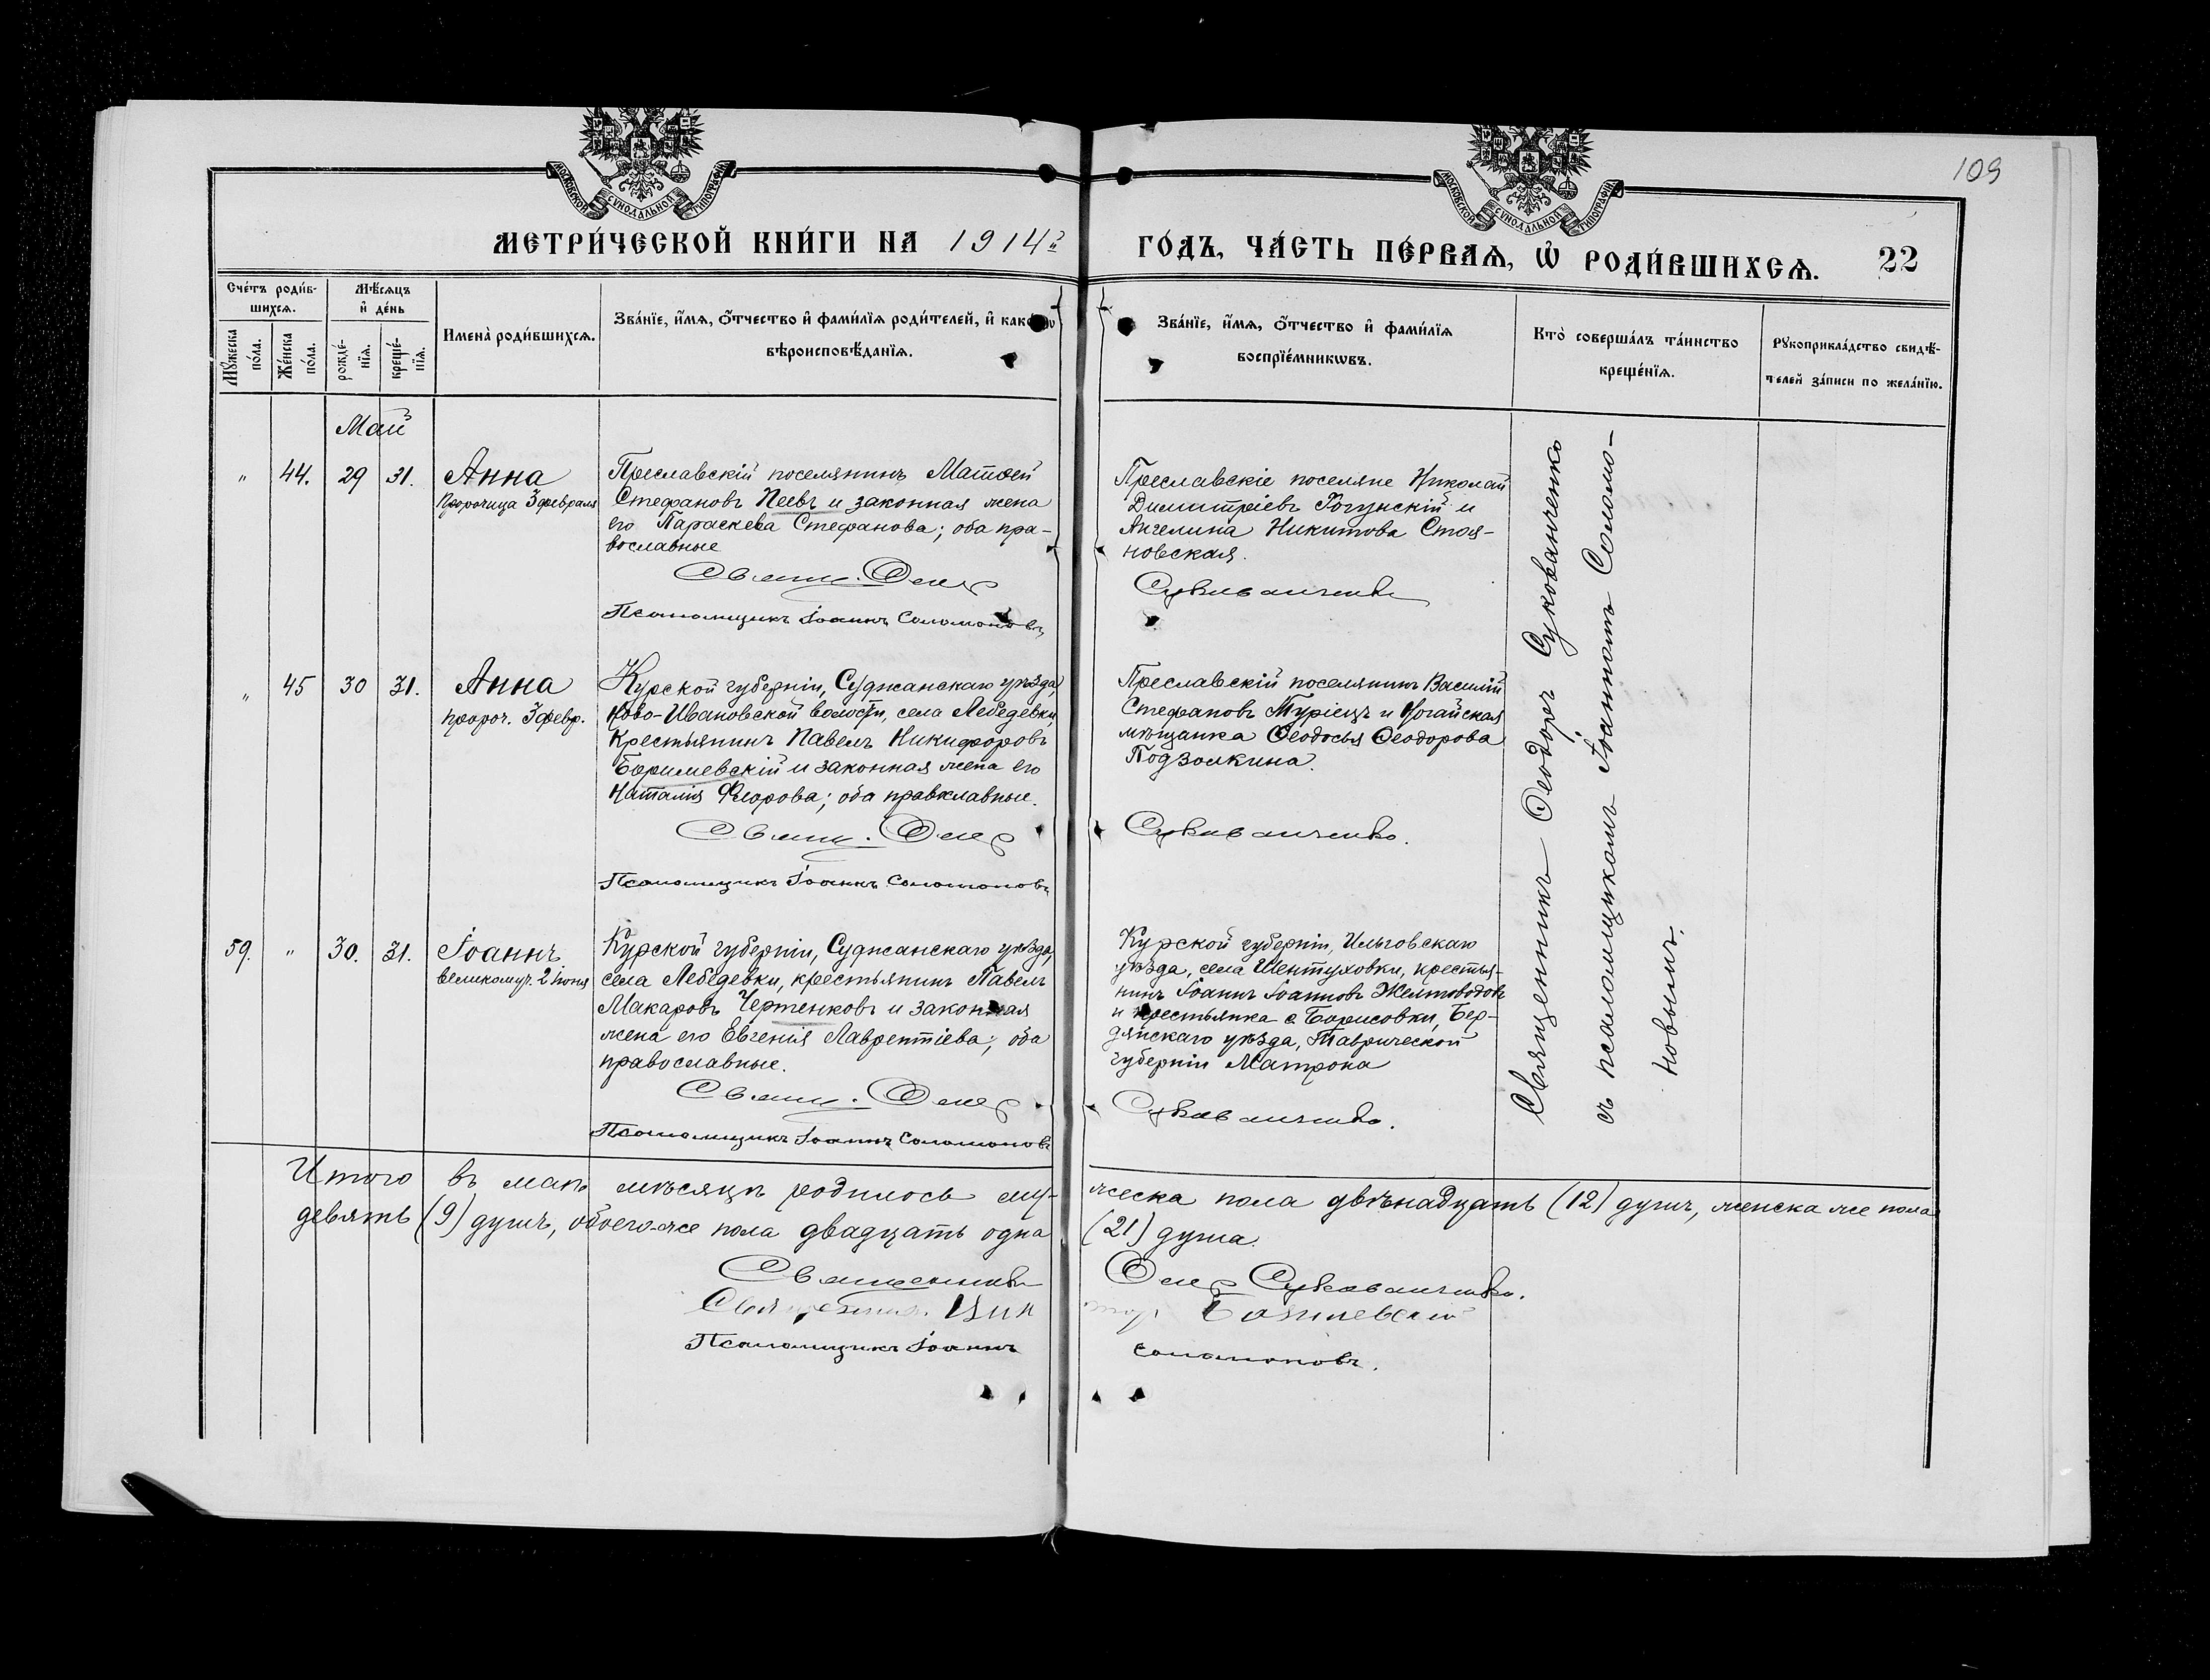 109
МОСКОВСКОЙ СУНОДАЛЬНОЙ ТИПОГРАФІИ
МОСКОВСКОЙ СУНОДАЛЬНОЙ ТИПОГРАФІИ
МЕТРИ́ЧЕСКОЙ КНИ́ГИ НА 1914й
ГО́ДЪ, ЧА́СТЬ ПЕ́РВАѦ, Ѽ РОДИ́ВШИХСѦ. 22
Сче́тъ роди́в-
шихсѧ.
Мꙋжеска
по́ла.
Же́нска
по́ла.
Мѣ́сѧцъ
и҆ де́нь
рожде́-
нїѧ.
креще́-
нїѧ.
Имена̀ роди́вшихсѧ.
Зва́нїе, и҆́мѧ, ѻ҆́тчество и҆ фами́лїѧ роди́телей, и҆ како́гѡ
вѣроисповѣ́данїѧ.
Зва́нїе, и҆́мѧ, ѻ҆́тчество и҆ фами́лїѧ
воспрїе́мникѡвъ.
Кто̀ соверша́лъ та́инство
креще́нїѧ.
Рꙋкоприкла́дство свидѣ́-
телей за́писи по жела́нїю.
Май
" 44. 29 31. Анна
Пророчица 3 февраля
Преславскій поселянинъ Матѳей
Стефановъ Пеевъ и законная жена
его Параскева Стефанова; оба пра-
вославные
Свящ. Ѳеод.
Псаломщикъ Іоаннъ Соломоновъ
Преславскіе поселяне Николай
Димитріевъ Рогунскій и
Ангелина Никитова Стоя-
новская.
Сукованченко
" 45 30 31. Анна
пророч. 3 февр.
Курской губерніи, Суджанскаго уѣзда,
Ново-Ивановской волости, села Лебедевки,
крестьянинъ Павелъ Никифоровъ
Боримевскій и законная жена его
Наталія Флорова; оба православные.
Свящ. Ѳеод.
Псаломщикъ Іоаннъ Соломоновъ
Преславскій поселянинъ Василій
Стефановъ Туріецъ и Ногайская
мѣщанка Ѳеодосья Ѳеодорова
Подзолкина.
Сукованченко.
59. " 30. 31. Іоаннъ
великомуч. 2 іюня
Курской губерніи, Суджанскаго уѣзда,
села Лебедевки, крестьянинъ Павелъ
Макаровъ Чертенковъ и законная
жена его Евгенія Лаврентіева; оба
православные.
Свящ. Ѳеод.
Псаломщикъ Іоаннъ Соломоновъ
Курской губерніи, Льговскаго
уѣзда, села Шептуховки, крестья-
нинъ Іоаннъ Іоанновъ Желтоводовъ
и крестьянка с. Борисовки, Бер-
дянскаго уѣзда, Таврической
губерніи Матрона
Сукованченко.
Священникъ Ѳеодоръ Сукованченко
съ псаломщикомъ Іоанномъ Соломо-
новымъ.
Итого въ маѣ мѣсяцѣ родилось му-
жеска пола двѣнадцать (12) душъ, женска же пола
девять (9) душъ, обоего-же пола двадцать одна
(21) душа.
Священникъ Ѳеод. Сукованченко.
Священникъ Вик
тор Базилевскій
Псаломщикъ Іоаннъ Соломоновъ.